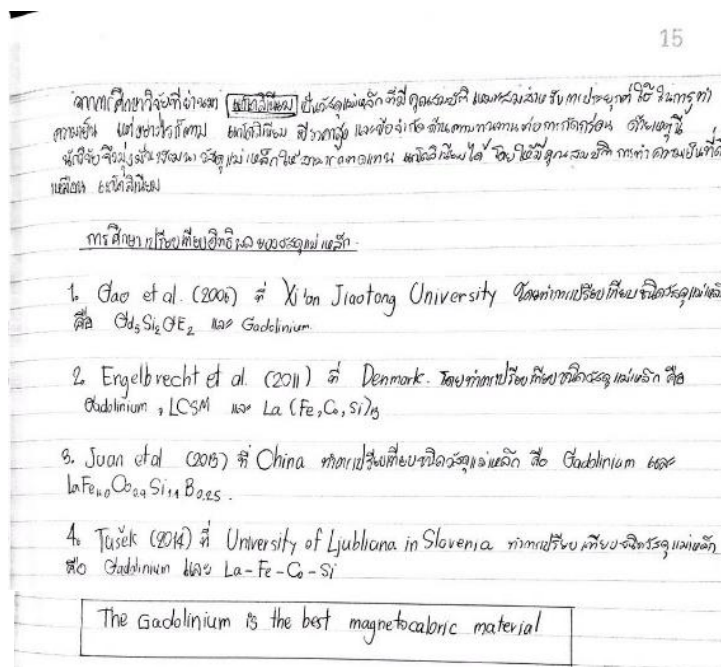 15
จากการศึกษาวิจัยที่ผ่านมา แกโดลิเนียม เป็นวัสดุแม่เหล็กที่มีคุณสมบัติเหมาะสมสำหรับการประยุกต์ใช้ในการทำ
ความเย็น แต่อย่างไรก็ตาม แกโดลิเนียม มีราคาสูง และข้อจำกัดด้านความทนทานต่อการกัดกร่อน ด้วยเหตุนี้
นักวิจัยจึงมุ่งมั่นพัฒนาวัสดุแม่เหล็กให้สามารถทดแทน แกโดลิเนียมได้ โดยให้มีคุณสมบัติการทำความเย็นที่ดี
เหมือน แกโดลิเนียม
การศึกษาเปรียบเทียบอิทธิพลของวัสดุแม่เหล็ก
1. Gao et al. (2006) ที่ Xi'an Jiaotong University โดยทำการเปรียบเทียบชนิดวัสดุแม่เหล็ก
คือ Gd5Si2GE2 และ Gadolinium
2. Engelbrecht et al. (2011) ที่ Denmark. โดยทำการเปรียบเทียบชนิดวัสดุแม่เหล็ก คือ
Gadolinium, LCSM และ La (Fe,Co,Si)13
3. Juan etal ที่ China ทำการเปรียบเทียบชนิดวัสดุแม่เหล็ก คือ Gadolinium และ
4. Tušek (2014) ที่ University of Ljubliana in Slovenia ทำการเปรียบเทียบชนิดวัสดุแม่เหล็ก
คือ Gadolinium และ La-Fe-Co-Si
The Gadolinium is the best magnetocaloric material